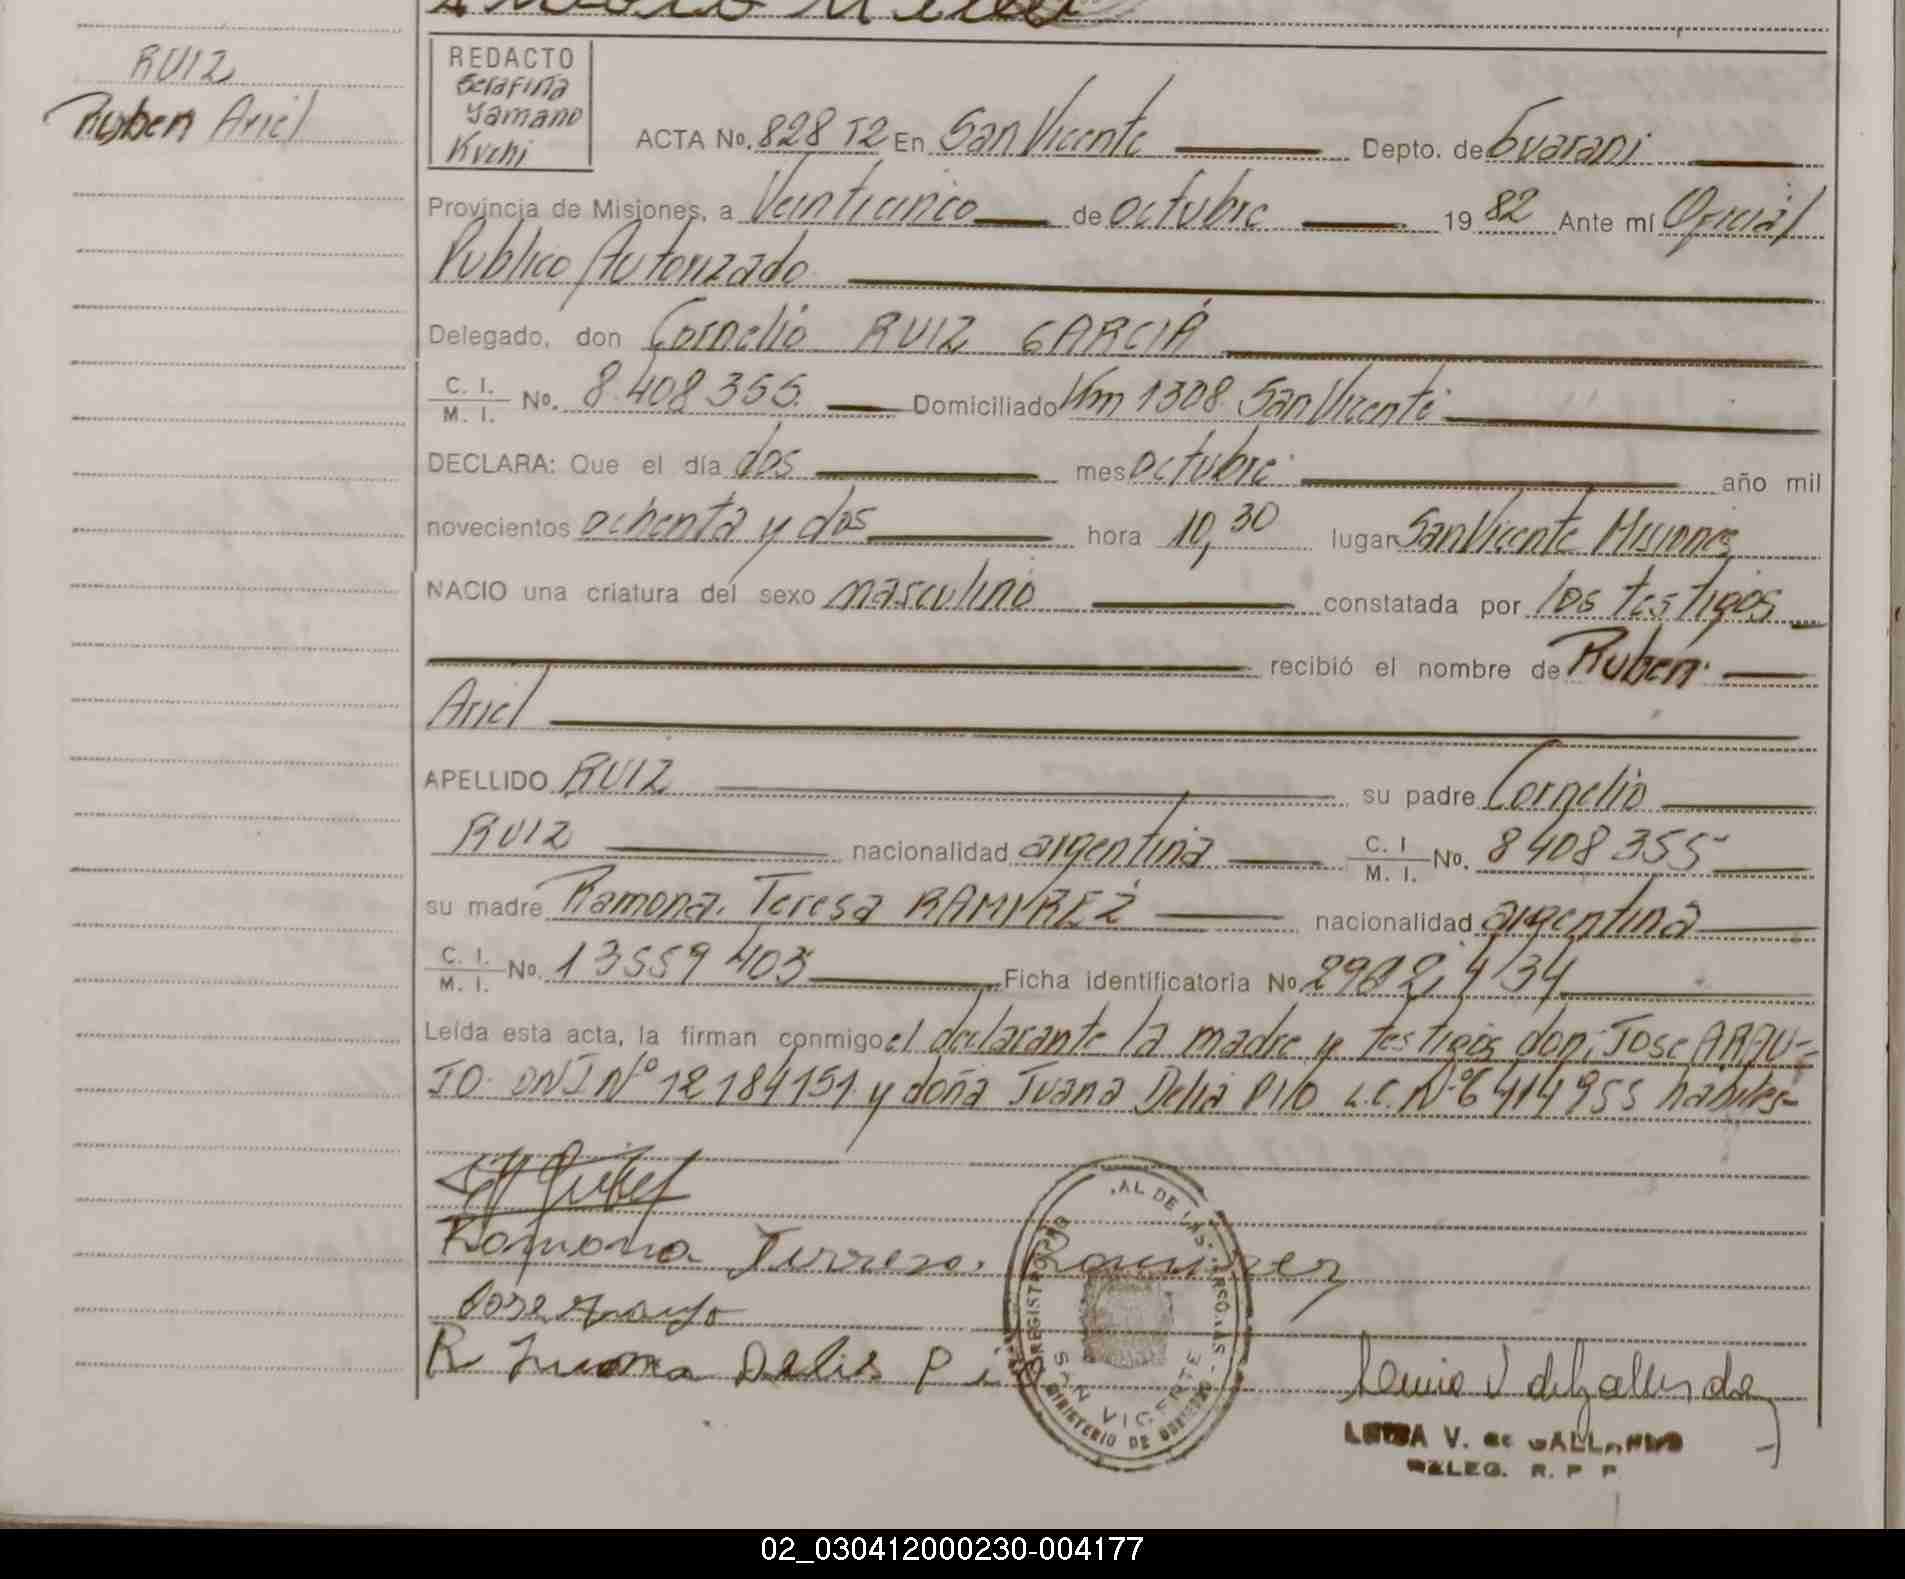 RUIZ
Ruben Ariel
REDACTO
Serafina
Yamano
Kuchi
ACTA No. 828 T2 En San Vicente Depto. de Guarani
Provincia de Misiones, a Veinticinco de octubre 19 82 Ante mí Oficial
Publico Autorizado
Delegado, don Cornelio RUIZ GARCIA
C. I. / M. I. No. 8.408.355. Domiciliado Km 1308 San Vicente
DECLARA: Que el día dos mes octubre año mil
novecientos ochenta y dos hora 10,30 lugar San Vicente Misiones
NACIO una criatura del sexo masculino constatada por los testigos
recibió el nombre de Ruben
Ariel
APELLIDO RUIZ su padre Cornelio
RUIZ nacionalidad argentina C. I / M. I. No. 8408355
su madre Ramona Teresa RAMIREZ nacionalidad argentina
C. I. / M. I. No. 13559403 Ficha identificatoria No
Leída esta acta, la firman conmigo el declarante la madre y testigos don: Jose ARAU-
JO DNI Nº 12184151 y doña Juana Delia PIO L.C. Nº 6414955 habiles-
Ramona Terreza Ramirez
Jose Araujo
R Juana Delis Pio
REGISTRO
AL DE LAS PERSONAS
SAN VICENTE
MINISTERIO DE GOBIERNO
LUISA V. de GALLARDO
DELEG. R. P. P
02_030412000230-004177